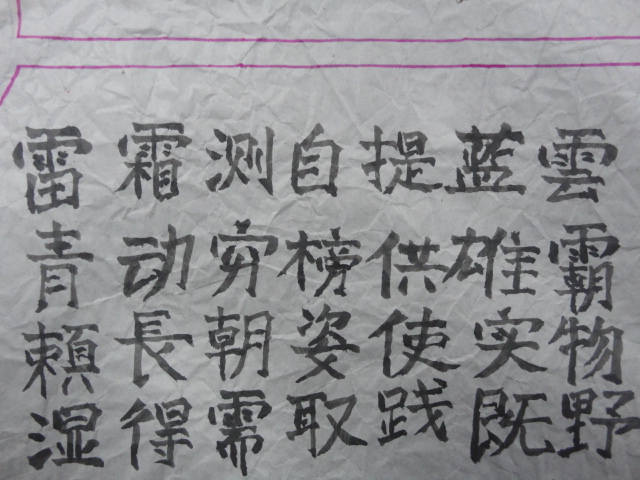 雷霜测自提蓝雲
青动穷榜供雄霸
賴長朝姿使实物
湿得需取践既野